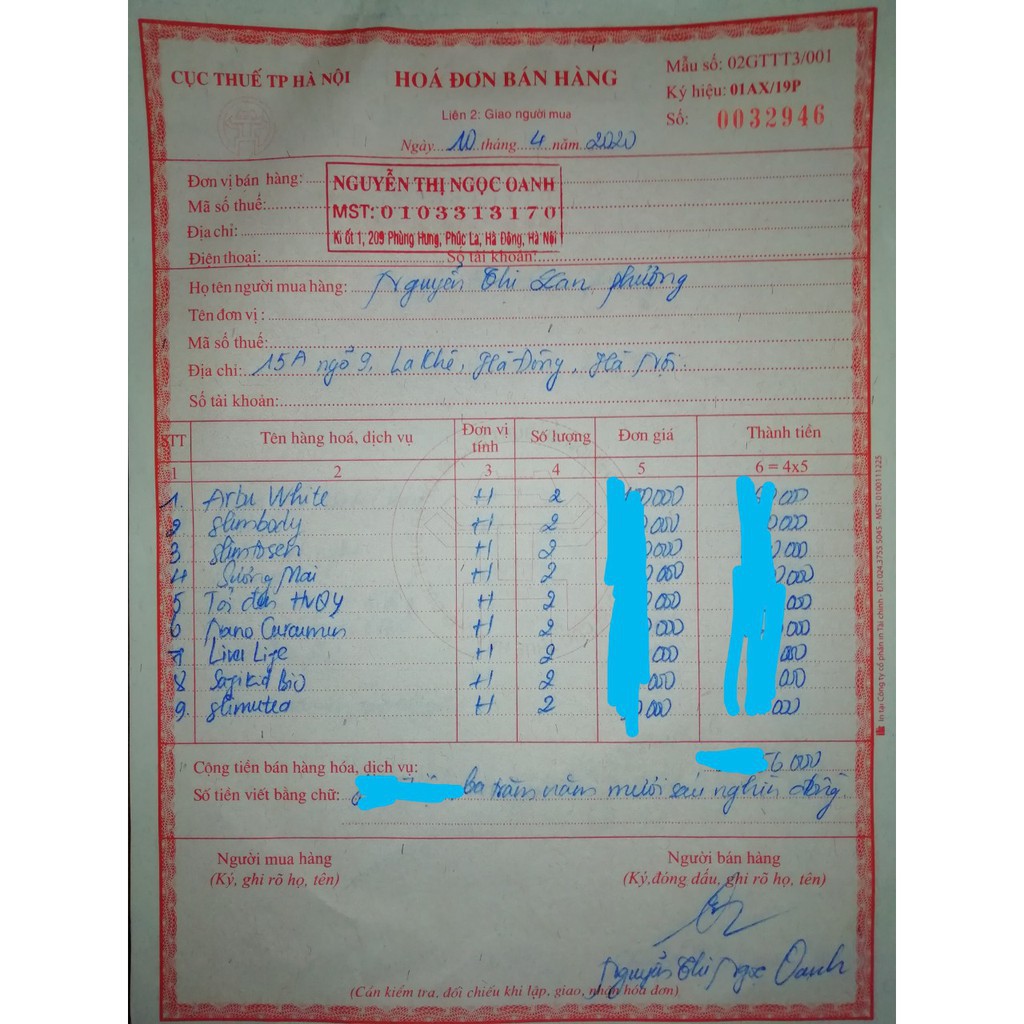 CỤC THUẾ TP HÀ NỘI
HOÁ ĐƠN BÁN HÀNG
Liên 2: Giao người mua
Ngày 10 tháng 4 năm 2020
Mẫu số: 02GTTT3/001
Ký hiệu: 01AX/19P
Số: 0032946
Đơn vị bán hàng:
NGUYỄN THỊ NGỌC OANH
Mã số thuế:
MST: 0103313170
Địa chỉ:
Ki ốt 1, 209 Phùng Hưng, Phúc La, Hà Đông, Hà Nội
Điện thoại: Số tài khoản:
Họ tên người mua hàng: Nguyễn Thị Lan Phương
Tên đơn vị:
Mã số thuế:
Địa chỉ: 15A ngõ 9, La Khê, Hà Đông, Hà Nội.
Số tài khoản:
STT Tên hàng hoá, dịch vụ Đơn vị tính Số lượng Đơn giá Thành tiền
1 2 3 4 5 6 = 4x5
1. Arbu White H 2 000 000
2 Slimbody H 2 000 000
3 Slimtosen H 2 000 000
4 Sương Mai H 2 000 000
5 Tỏi đen HVQY H 2 000 000
6 Nano Curcumin H 2 000 000
7 Liver Life H 2 000 000
8 Sagikid Bio H 2 000 000
9. Slimutea H 2 000 000
Cộng tiền bán hàng hóa, dịch vụ: 6 000
Số tiền viết bằng chữ: ba trăm năm mươi sáu nghìn đồng.
Người mua hàng
(Ký, ghi rõ họ, tên)
Người bán hàng
(Ký, đóng dấu, ghi rõ họ, tên)
Nguyễn Thị Ngọc Oanh
(Cần kiểm tra, đối chiếu khi lập, giao, nhận hóa đơn)
In tại Công ty cổ phần in Tài chính - ĐT: 024.3755.5045 - MST: 0100111225